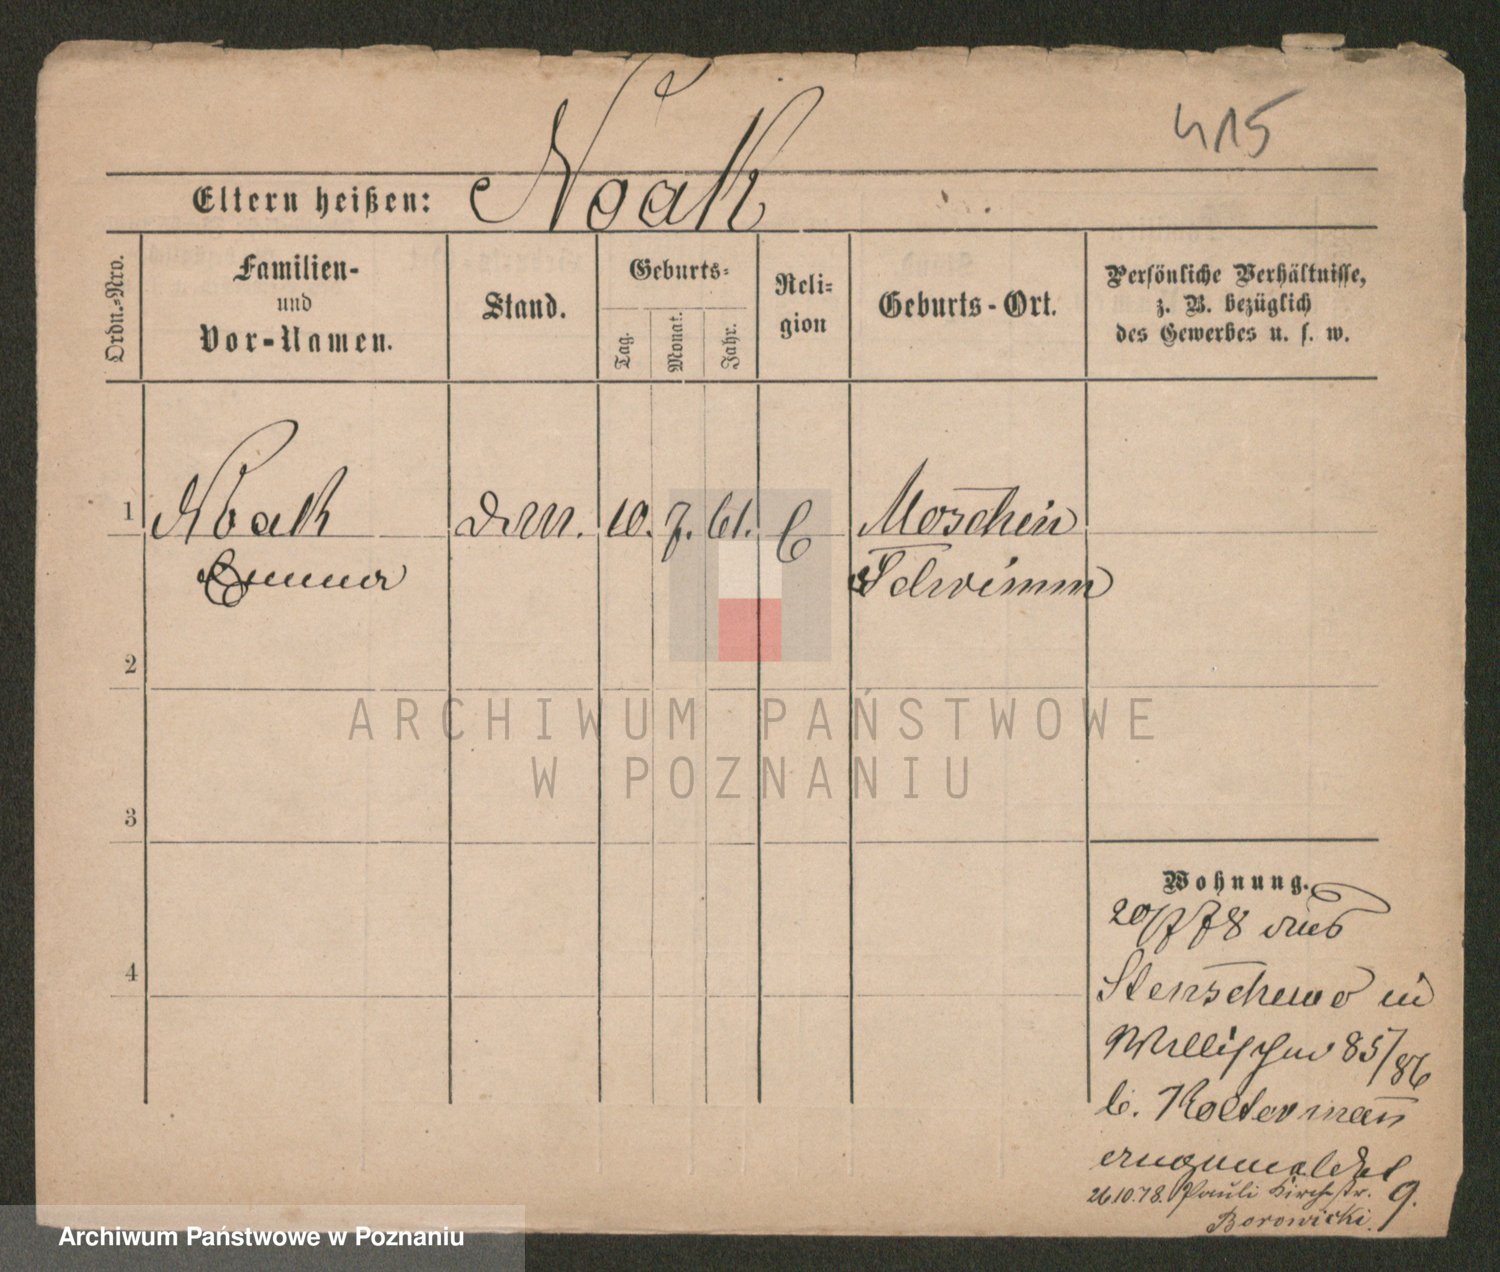 415
Eltern heißen: Noak
Ordn.-Nro.
Familien-
und
Vor-Namen.
Stand.
Geburts-
Tag.
Monat.
Jahr.
Reli-
gion
Geburts-Ort.
Persönliche Verhältnisse,
z. B. bezüglich
des Gewerbes u. s. w.
1 Noak 10. 7. 61. Moschin
Emma Schrimm
2
3
4
ARCHIWUM PAŃSTWOWE
W POZNANIU
Wohnung.
20/7 78 aus
Stenschewo in
Wallischei 85/86
b. Koltermann
angemeldet
26.10.78. Pauli Kirchstr. 9.
Borowicki.
Archiwum Państwowe w Poznaniu